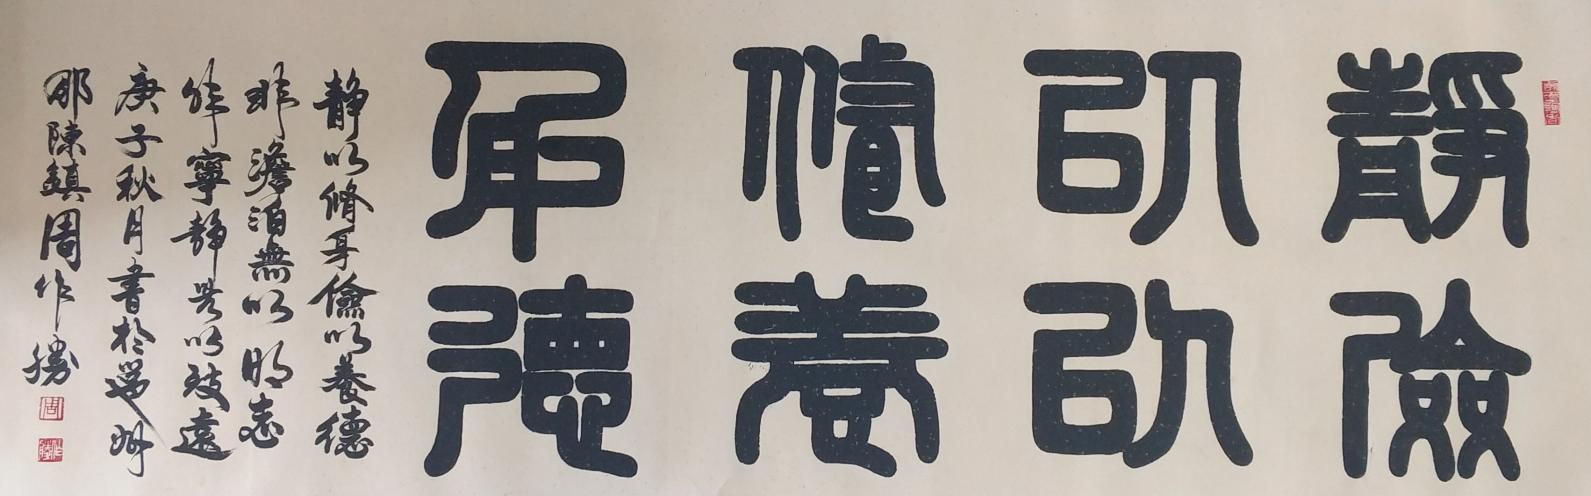 靜儉
以以
脩養
身德
靜以脩身儉以養德
非澹泊無以明志
非寧靜無以致遠
庚子秋月書於
陳鎮周作勝
周